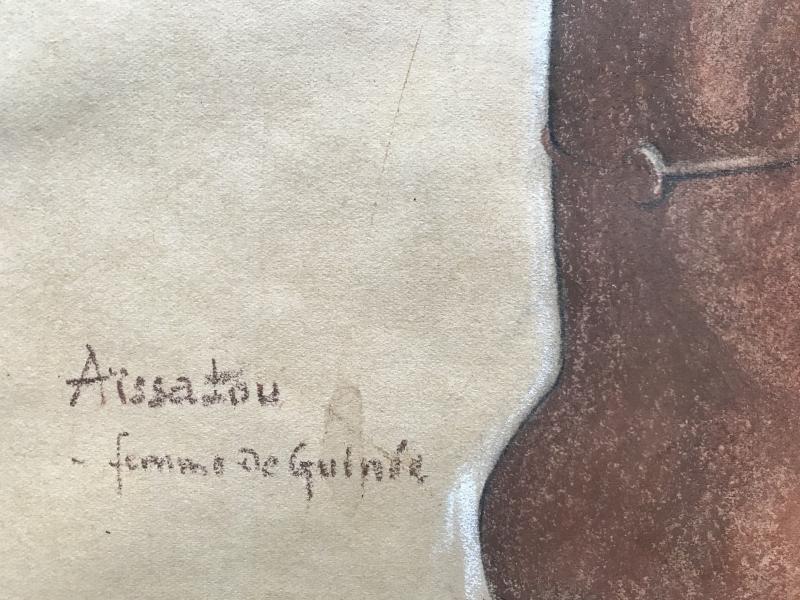 Aïssatou
- femme de Guinée